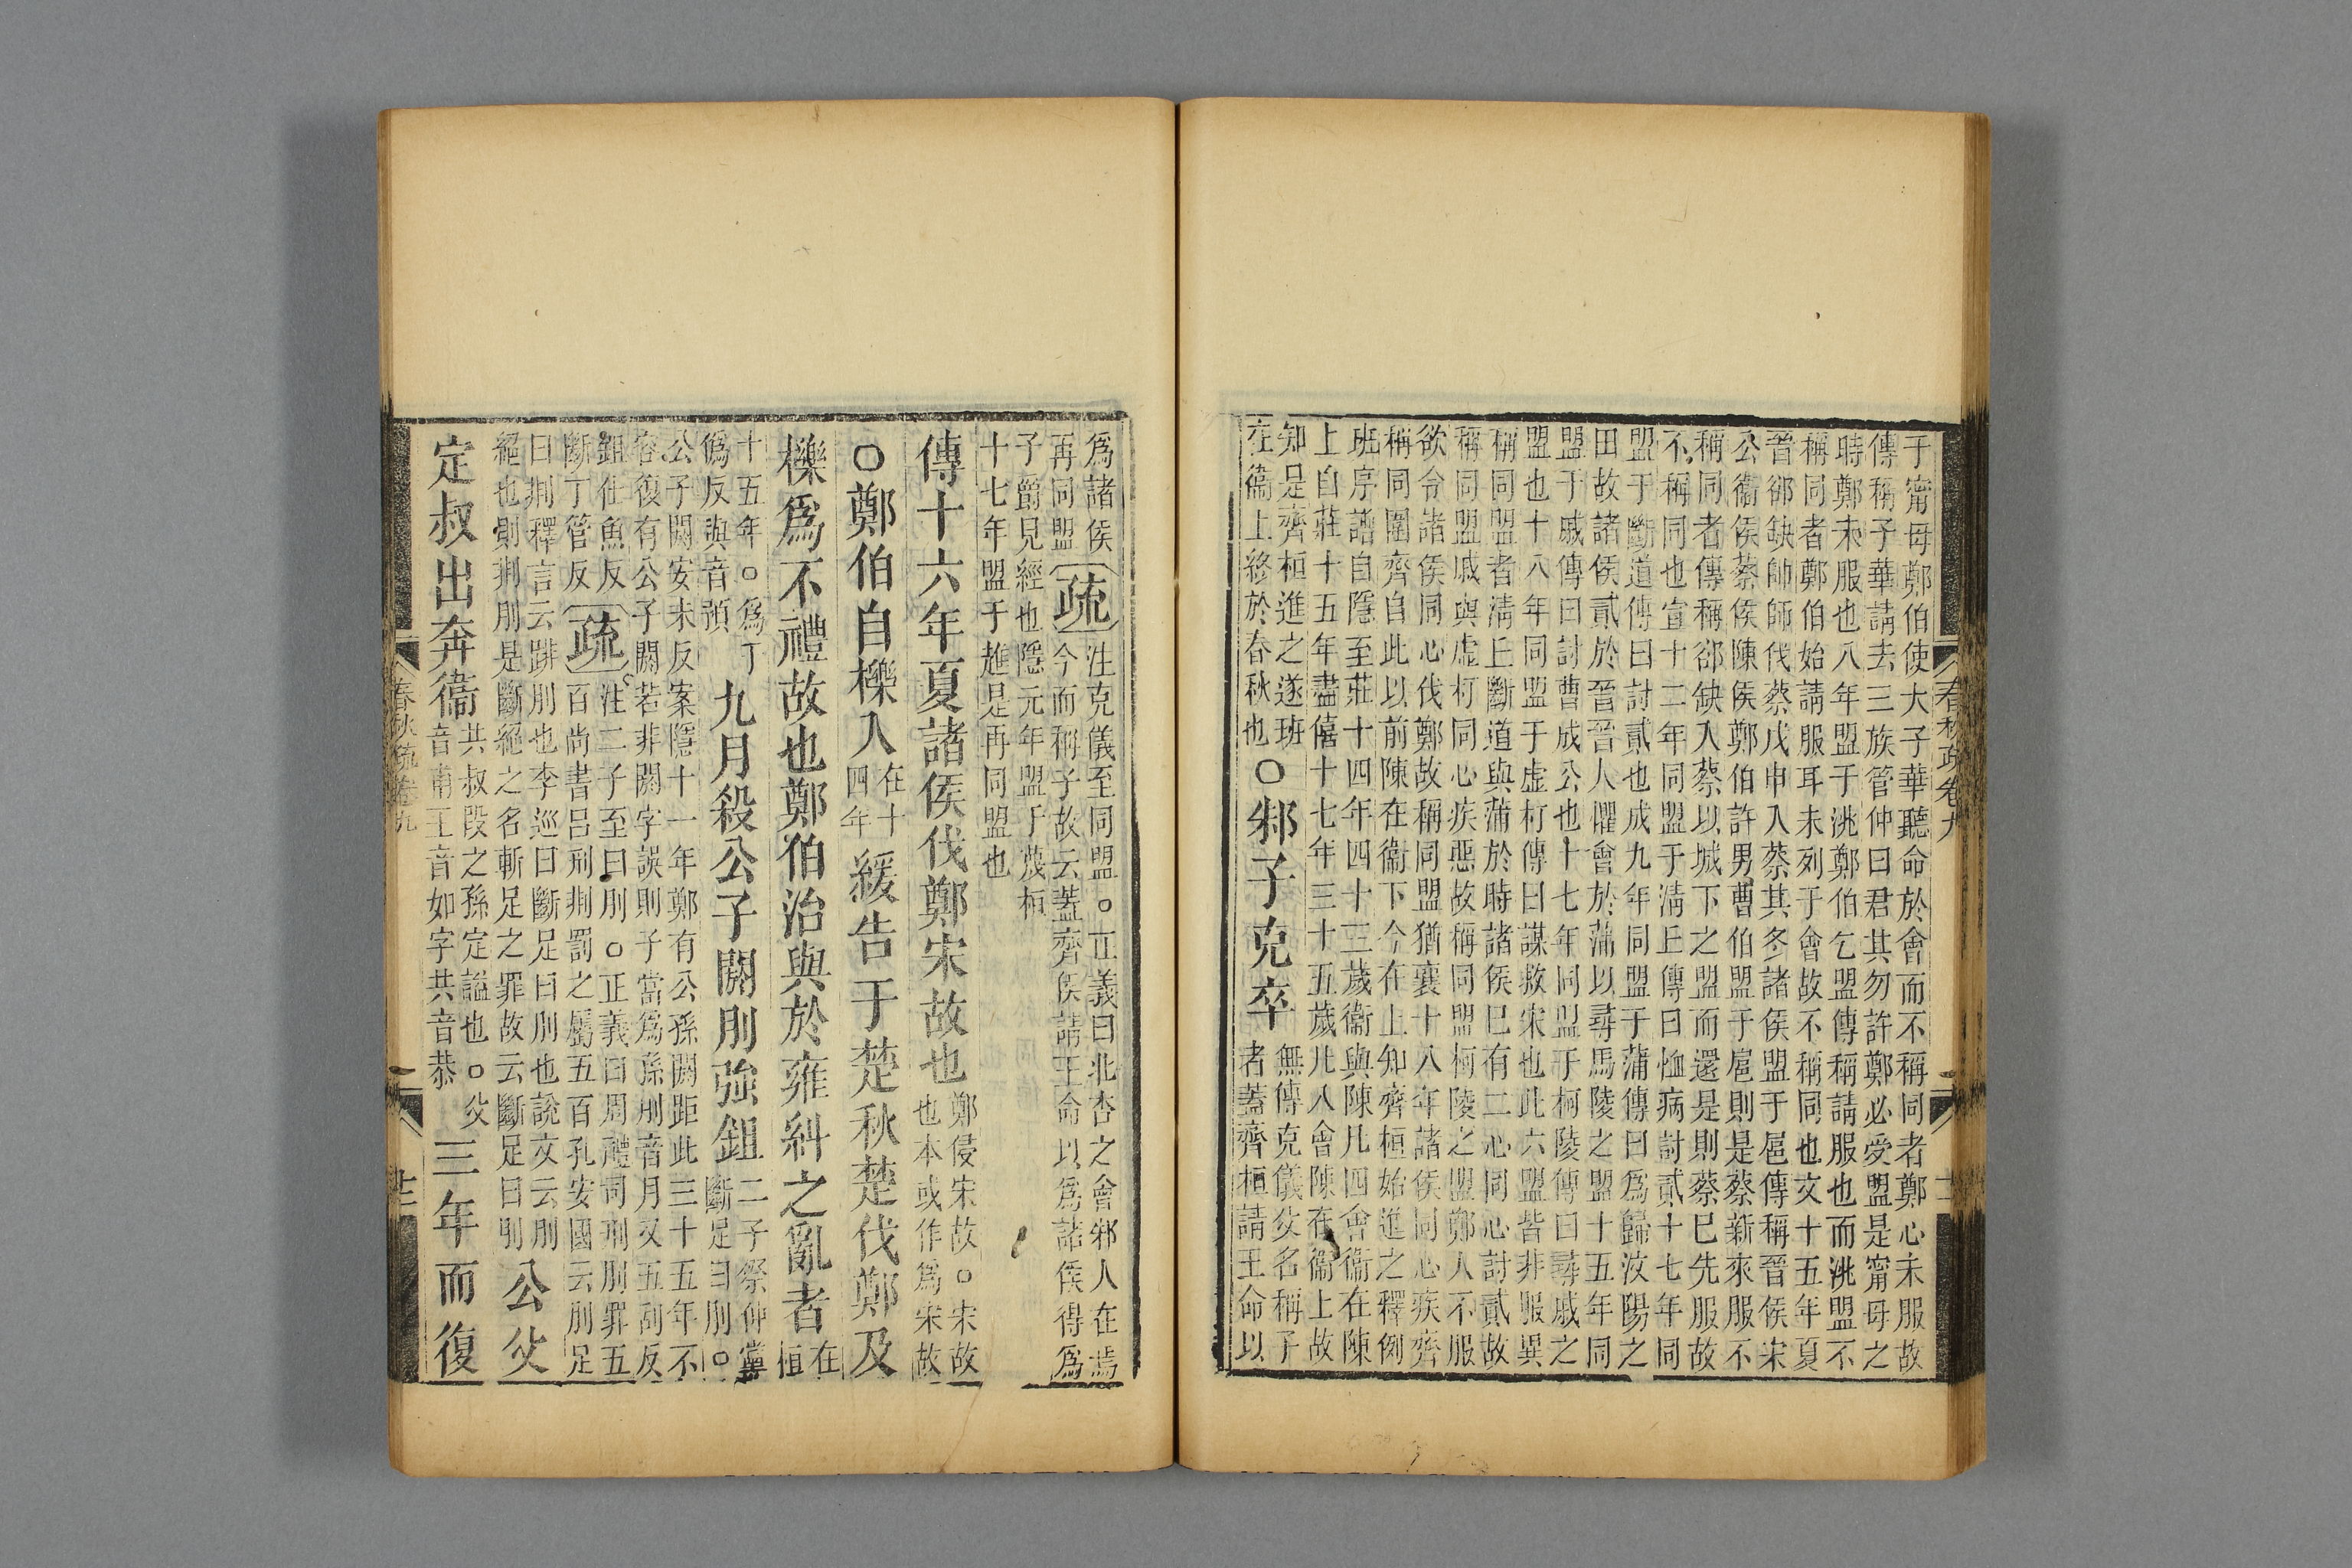 于甯母鄭伯使大子華聽命於會而不稱同者鄭心未服故
傳稱子華請去三族管仲曰君其勿許鄭必受盟是甯母之
時鄭未服也八年盟于洮鄭伯乞盟傳稱請服也而洮盟不
稱同者鄭伯始請服耳未列于會故不稱同也文十五年夏
晉郤缺帥師伐蔡戊申入蔡其冬諸侯盟于扈傳稱晉侯宋
公衞侯蔡侯陳侯鄭伯許男曹伯盟于扈則是蔡新來服不
稱同者傳稱郤缺入蔡以城下之盟而還是則蔡已先服故
不稱同也宣十二年同盟于淸丘傳曰恤病討貳十七年同
盟于斷道傳曰討貳也成九年同盟于蒲傳曰爲歸汶陽之
田故諸侯貳於晉晉人懼會於蒲以尋馬陵之盟十五年同
盟于戚傳曰討曹成公也十七年同盟于柯陵傳曰尋戚之
盟也十八年同盟于虛朾傳曰謀救宋也此六盟皆非服異
稱同盟者淸丘斷道與蒲於時諸侯已有二心同心討貳故
稱同盟戚與虛朾同心疾惡故稱同盟柯陵之盟鄭人不服
欲令諸侯同心伐鄭故稱同盟猶襄十八年諸侯同心疾齊
稱同圍齊自此以前陳在衞下今在上知齊桓始進之釋例
班序譜自隱至莊十四年四十三歲衞與陳凡四會衞在陳
上自莊十五年盡僖十七年三十五歲凡八會陳在衞上故
知是齊桓進之遂班
在衞上終於春秋也
○邾子克卒
無傳克儀父名稱子
者蓋齊桓請王命以
春秋疏卷九
爲諸侯
再同盟
疏
注克儀至同盟○正義曰北杏之會邾人在焉
今而稱子故云蓋齊侯請王命以爲諸侯得爲
子爵見經也隱元年盟于蔑桓
十七年盟于趡是再同盟也
傳十六年夏諸侯伐鄭宋故也
鄭侵宋故○宋故
也本或作爲宋故
○鄭伯自櫟入
在十
四年
緩告于楚秋楚伐鄭及
櫟爲不禮故也鄭伯治與於雍糾之亂者
在
桓
十五年○爲于
僞反與音預
九月殺公子閼刖強鉏
二子祭仲黨
斷足曰刖○
公子閼安未反案隱十一年鄭有公孫閼距此三十五年不
容復有公子閼若非閼字誤則子當爲孫刖音月又五刮反
鉏仕魚反
斷丁管反
疏
注二子至曰刖○正義曰周禮司刑刖罪五
百尚書呂刑剕罰之屬五百孔安國云刖足
曰剕釋言云跀刖也李巡曰斷足曰刖也說文云刖
絕也則剕刖是斷絕之名斬足之罪故云斷足曰刖
公父
定叔出奔衞
共叔段之孫定謚也○父
音甫王音如字共音恭
三年而復
春秋疏卷九